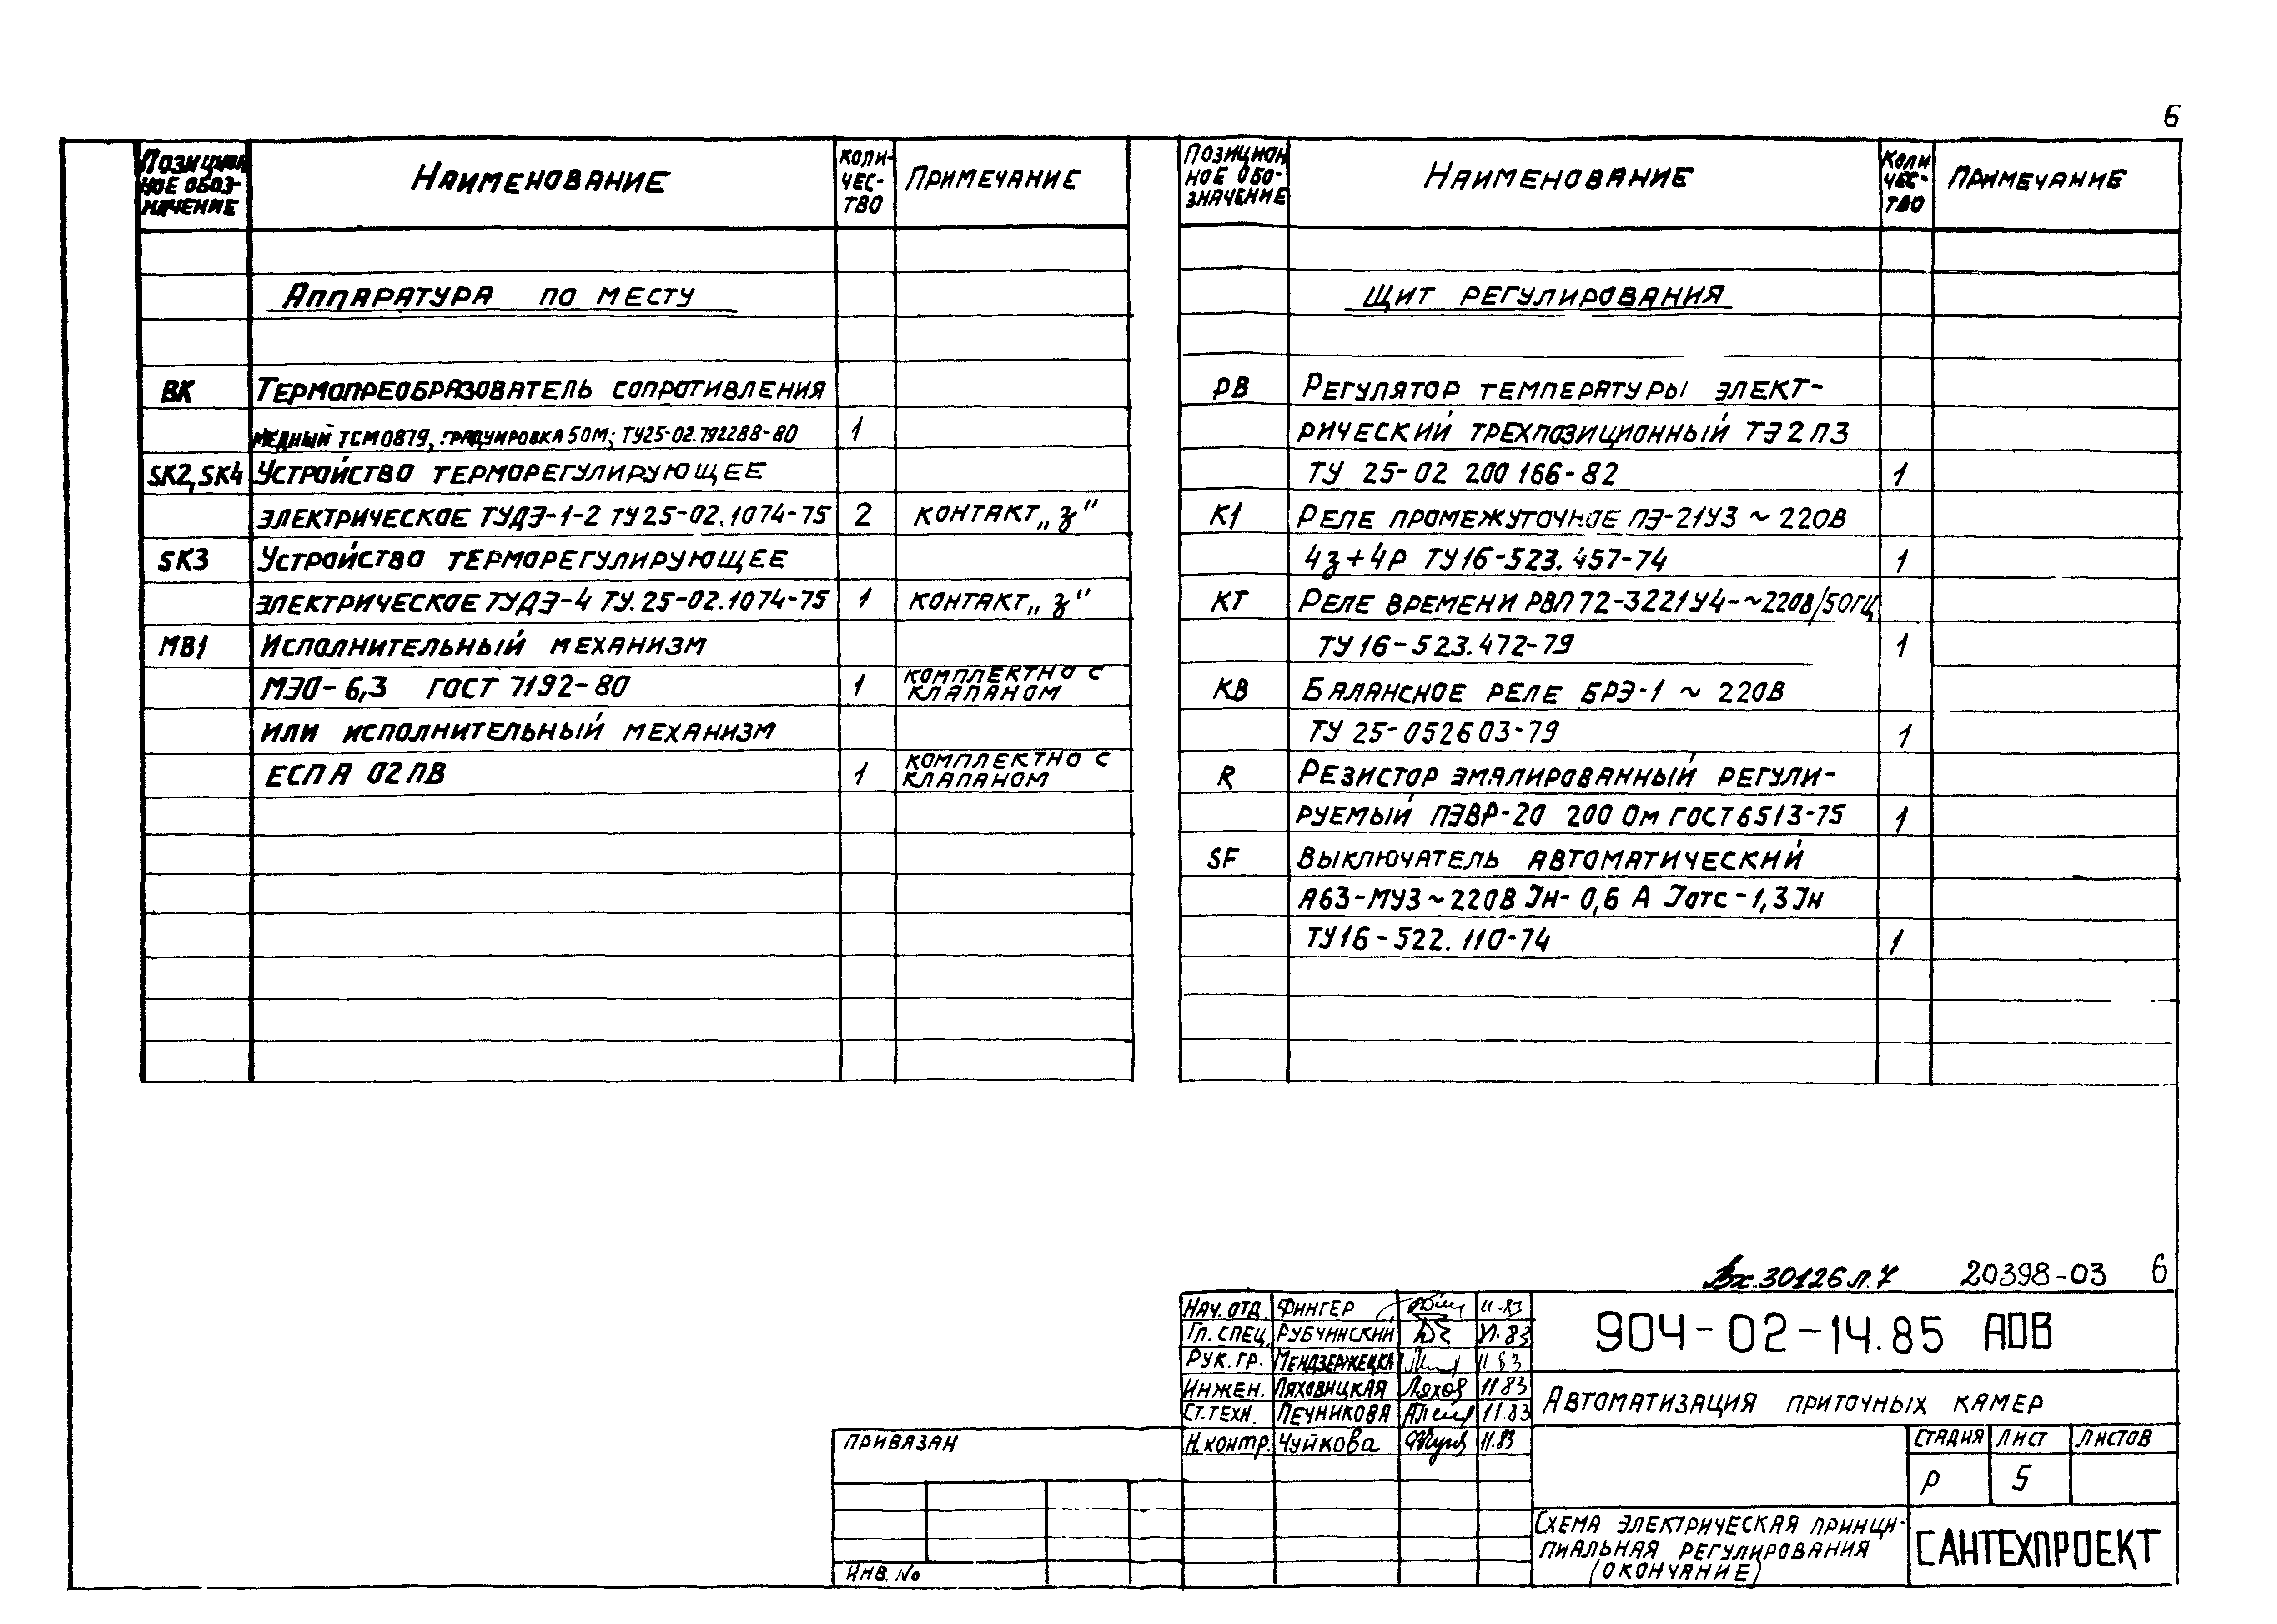 6
Позиционное обозначение Наименование Количество Примечание
Аппаратура по месту
ВК Термопреобразователь сопротивления
медный ТСМ0879, градуировка 50М; ТУ25-02.792288-80 1
SK2, SK4 Устройство терморегулирующее
электрическое ТУДЭ-1-2 ТУ 25-02.1074-75 2 контакт „з"
SK3 Устройство терморегулирующее
электрическое ТУДЭ-4 ТУ. 25-02.1074-75 1 контакт „з"
МВ1 Исполнительный механизм
МЭО-6,3 ГОСТ 7192-80 1 комплектно с клапаном
или исполнительный механизм
ЕСПА 02ПВ 1 комплектно с клапаном
Позиционное обозначение Наименование Количество Примечание
Щит регулирования
РВ Регулятор температуры элект-
рический трехпозиционный ТЭ2П3
ТУ 25-02 200 166-82 1
К1 Реле промежуточное ПЭ-21У3 ~ 220В
4з+4р ТУ16-523.457-74 1
КТ Реле времени РВП72-3221У4-~220В/50Гц
ТУ16-523.472-79 1
КВ Балансное реле БРЭ-1 ~ 220В
ТУ 25-052603-79 1
R Резистор эмалированный регули-
руемый ПЭВР-20 200 Ом ГОСТ6513-75 1
SF Выключатель автоматический
А63-МУ3~220В Iн-0,6 А Iотс-1,3Iн
ТУ16-522.110-74 1
Вх.30126 л.7 20398-03 6
Нач. отд. Фингер 11-83
Гл. спец. Рубчинский VI.83
Рук. гр. Мендзержецка 11 83
Инжен. Ляховицкая Ляхов 11 83
Ст.техн. Печникова 11.83
Н.контр. Чуйкова 11.83
904-02-14.85 АОВ
Автоматизация приточных камер
стадия лист листов
Р 5
Схема электрическая принци-
пиальная регулирования
(окончание)
САНТЕХПРОЕКТ
Привязан
Инв. №